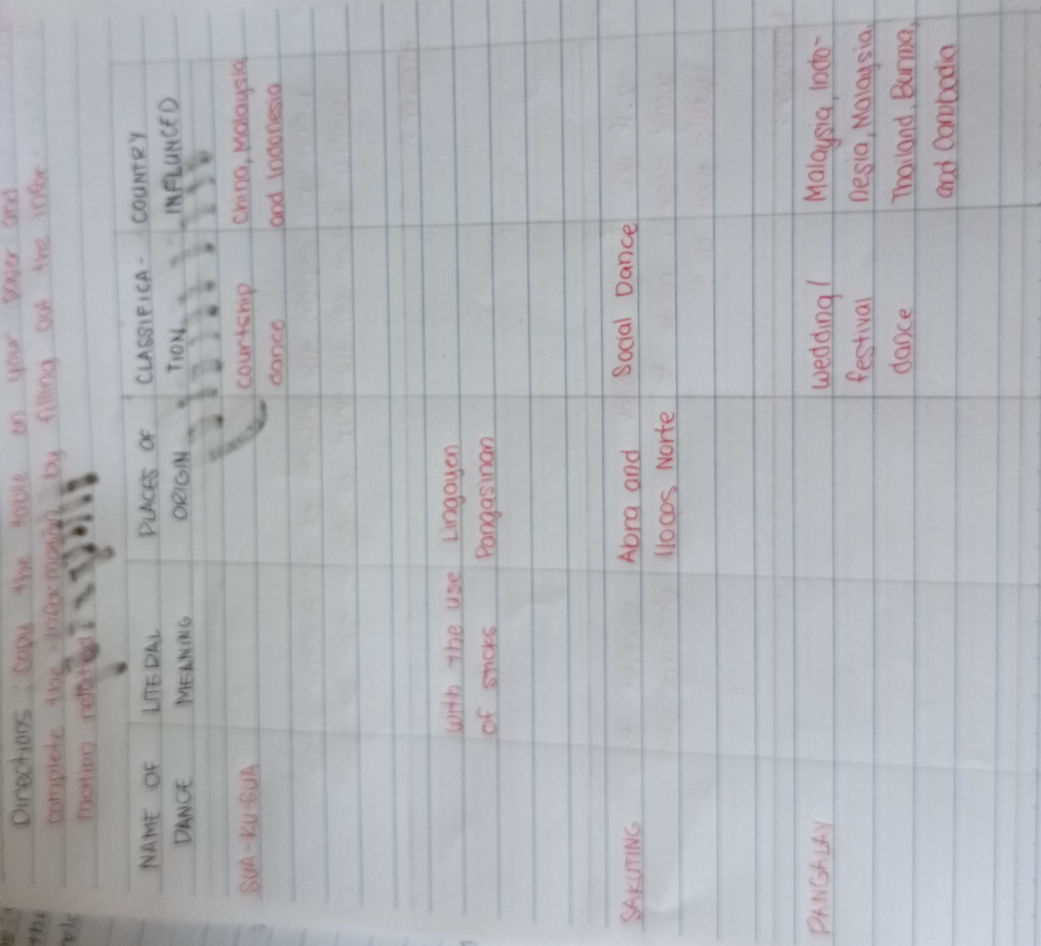 Directions: copy the table on your paper and
complete the information by filling out the infor-
mation related
NAME OF DANCE
LITERAL MEANING
PLACES OF ORIGIN
CLASSIFICA-TION
COUNTRY INFLUNCED
SUA-KU-SUA
courtship
dance
China, Malaysia
and Indonesia
With the use
of sticks
Lingayen
Pangasinan
SAKUTING
Abra and
Ilocos Norte
Social Dance
PANGALAY
wedding/
festival
dance
Malaysia, Indo-
nesia, Malaysia,
Thailand, Burma,
and Cambodia